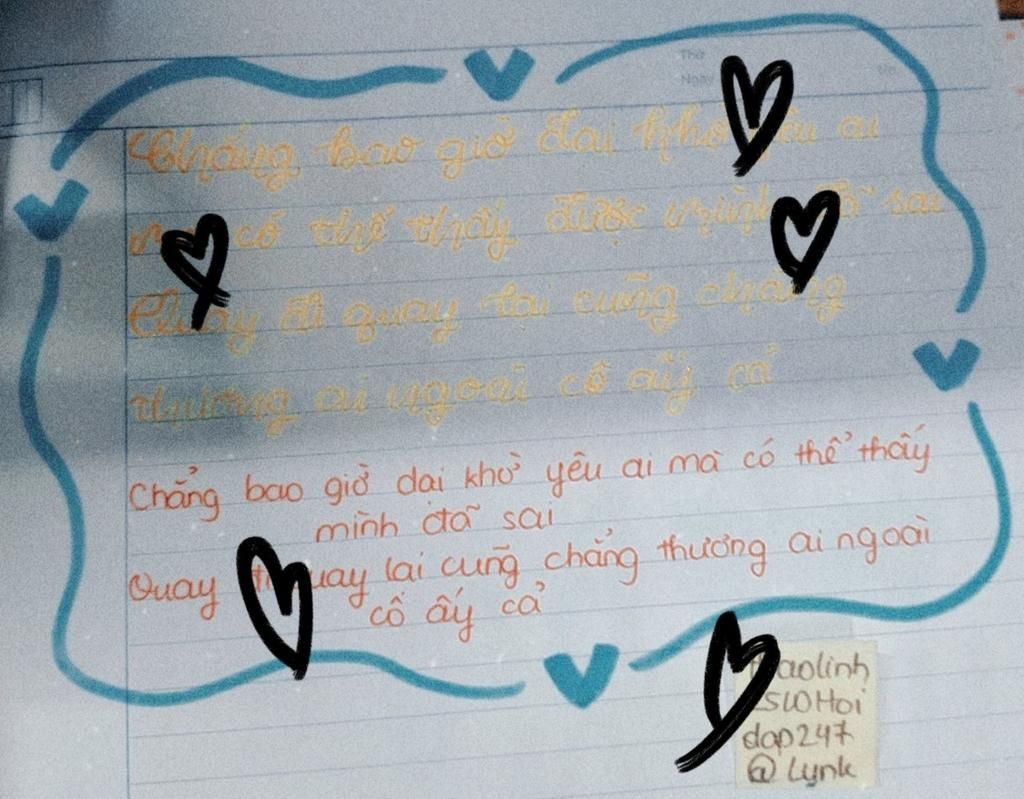 Chẳng bao giờ dại khờ yêu ai
có thể thấy được mình đã sai
Quay đi quay lại cũng chẳng
thương ai ngoài cô ấy cả
Chẳng bao giờ dại khờ yêu ai mà có thể thấy
mình đã sai
Quay quay lại cũng chẳng thương ai ngoài
cô ấy cả
dap247
@Lynk